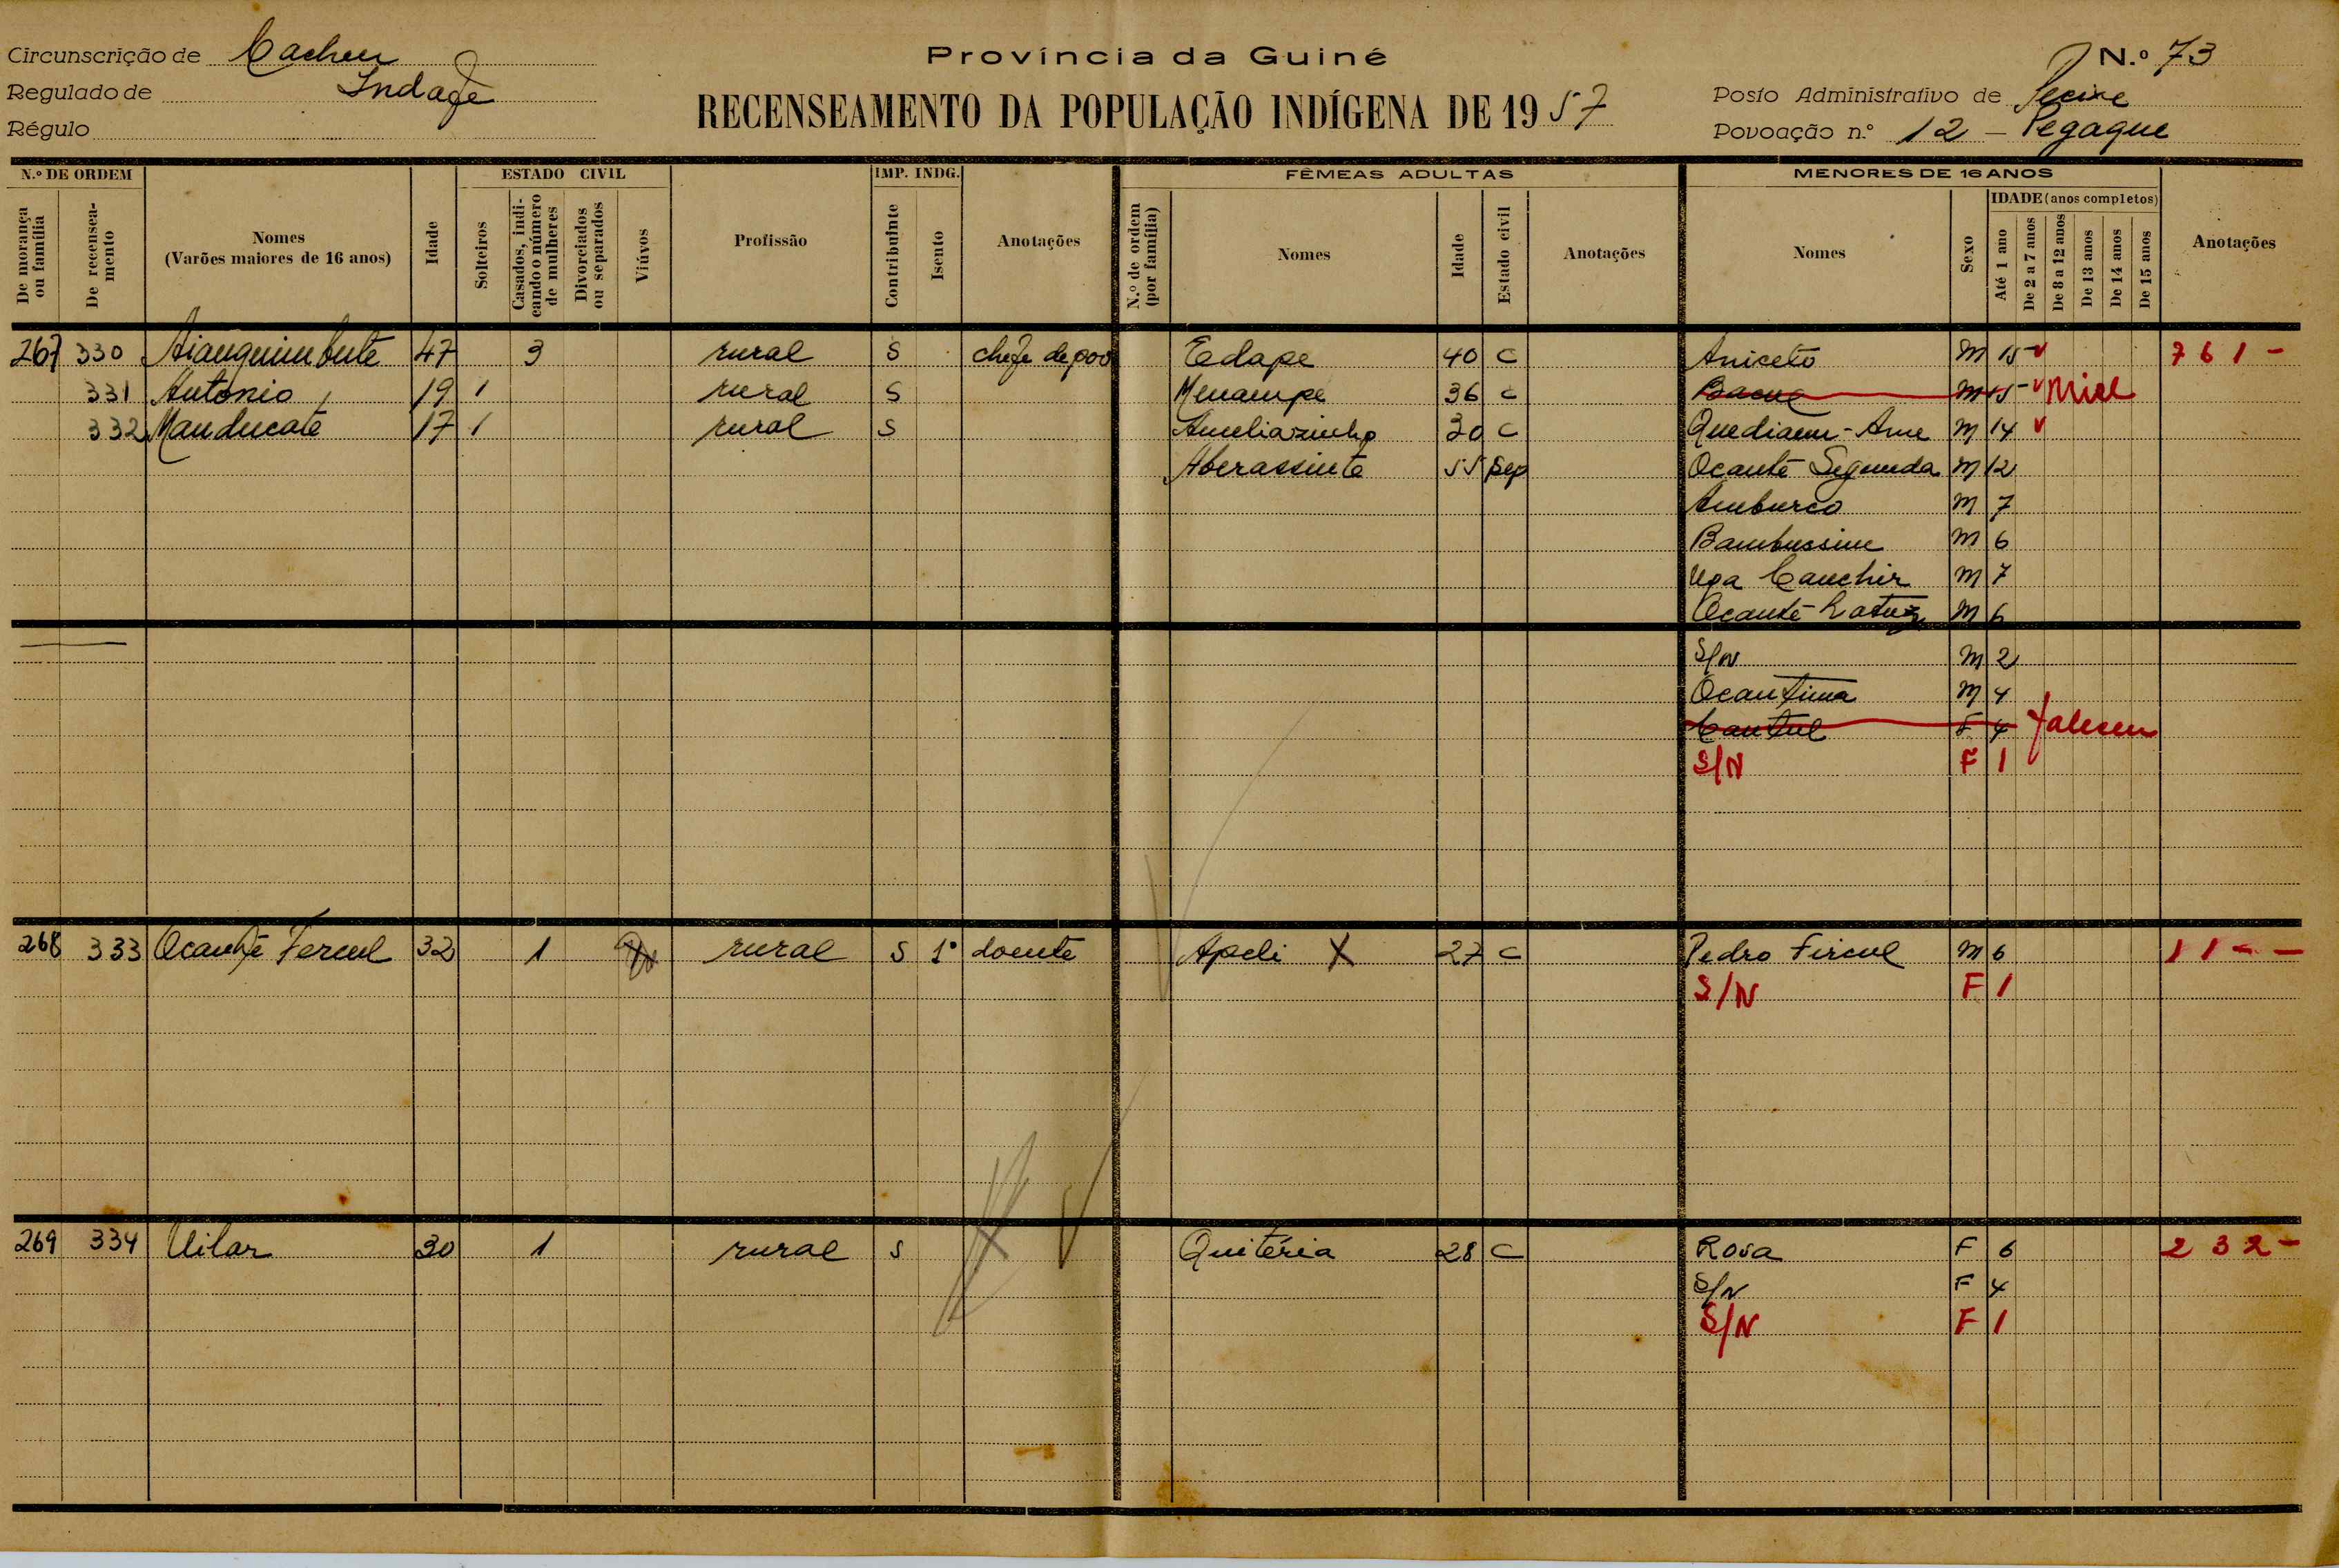 Circunscrição de Cacheu
Regulado de Indafe
Régulo
Província da Guiné
RECENSEAMENTO DA POPULAÇÃO INDÍGENA DE 1957
N.º 73
Posto Administrativo de Pecixe
Povoação n.º 12 - Pegaque
N.º DE ORDEM
De morança ou família
De recenseamento
Nomes
(Varões maiores de 16 anos)
Idade
ESTADO CIVIL
Solteiros
Casados, indicando o número de mulheres
Divorciados ou separados
Viúvos
Profissão
IMP. INDG.
Contribuinte
Isento
Anotações
FÊMEAS ADULTAS
N.º de ordem (por família)
Nomes
Idade
Estado civil
Anotações
MENORES DE 16 ANOS
Nomes
Sexo
IDADE (anos completos)
Até 1 ano
De 2 a 7 anos
De 8 a 12 anos
De 13 anos
De 14 anos
De 15 anos
Anotações
267 330 Aianguimbute 47 3 rural S chefe de pov Edape 40 C Aniceto M 15 - v 7 6 1 -
331 Antonio 19 1 rural S Menampe 36 C M 15 - v
332 Manducate 17 1 rural S Ameliazinho 30 C Quediam - Ame M 14 v
Aberassinte 55 Sep Ocante Segunda M 12
Amburco M 7
Bambussim M 6
Upa Canchir M 7
Ocante M 6
S/N M 2
Ocantima M 4
Cantul F 4 faleceu
S/N F 1
268 333 Ocante Fercul 32 1 rural S 1º doente Apeli X 27 C Pedro Fircul M 6 1 1 - -
S/N F 1
269 334 Uilar 30 1 rural S Quitéria 28 C Rosa F 6 2 3 2 -
S/N F 4
S/N F 1